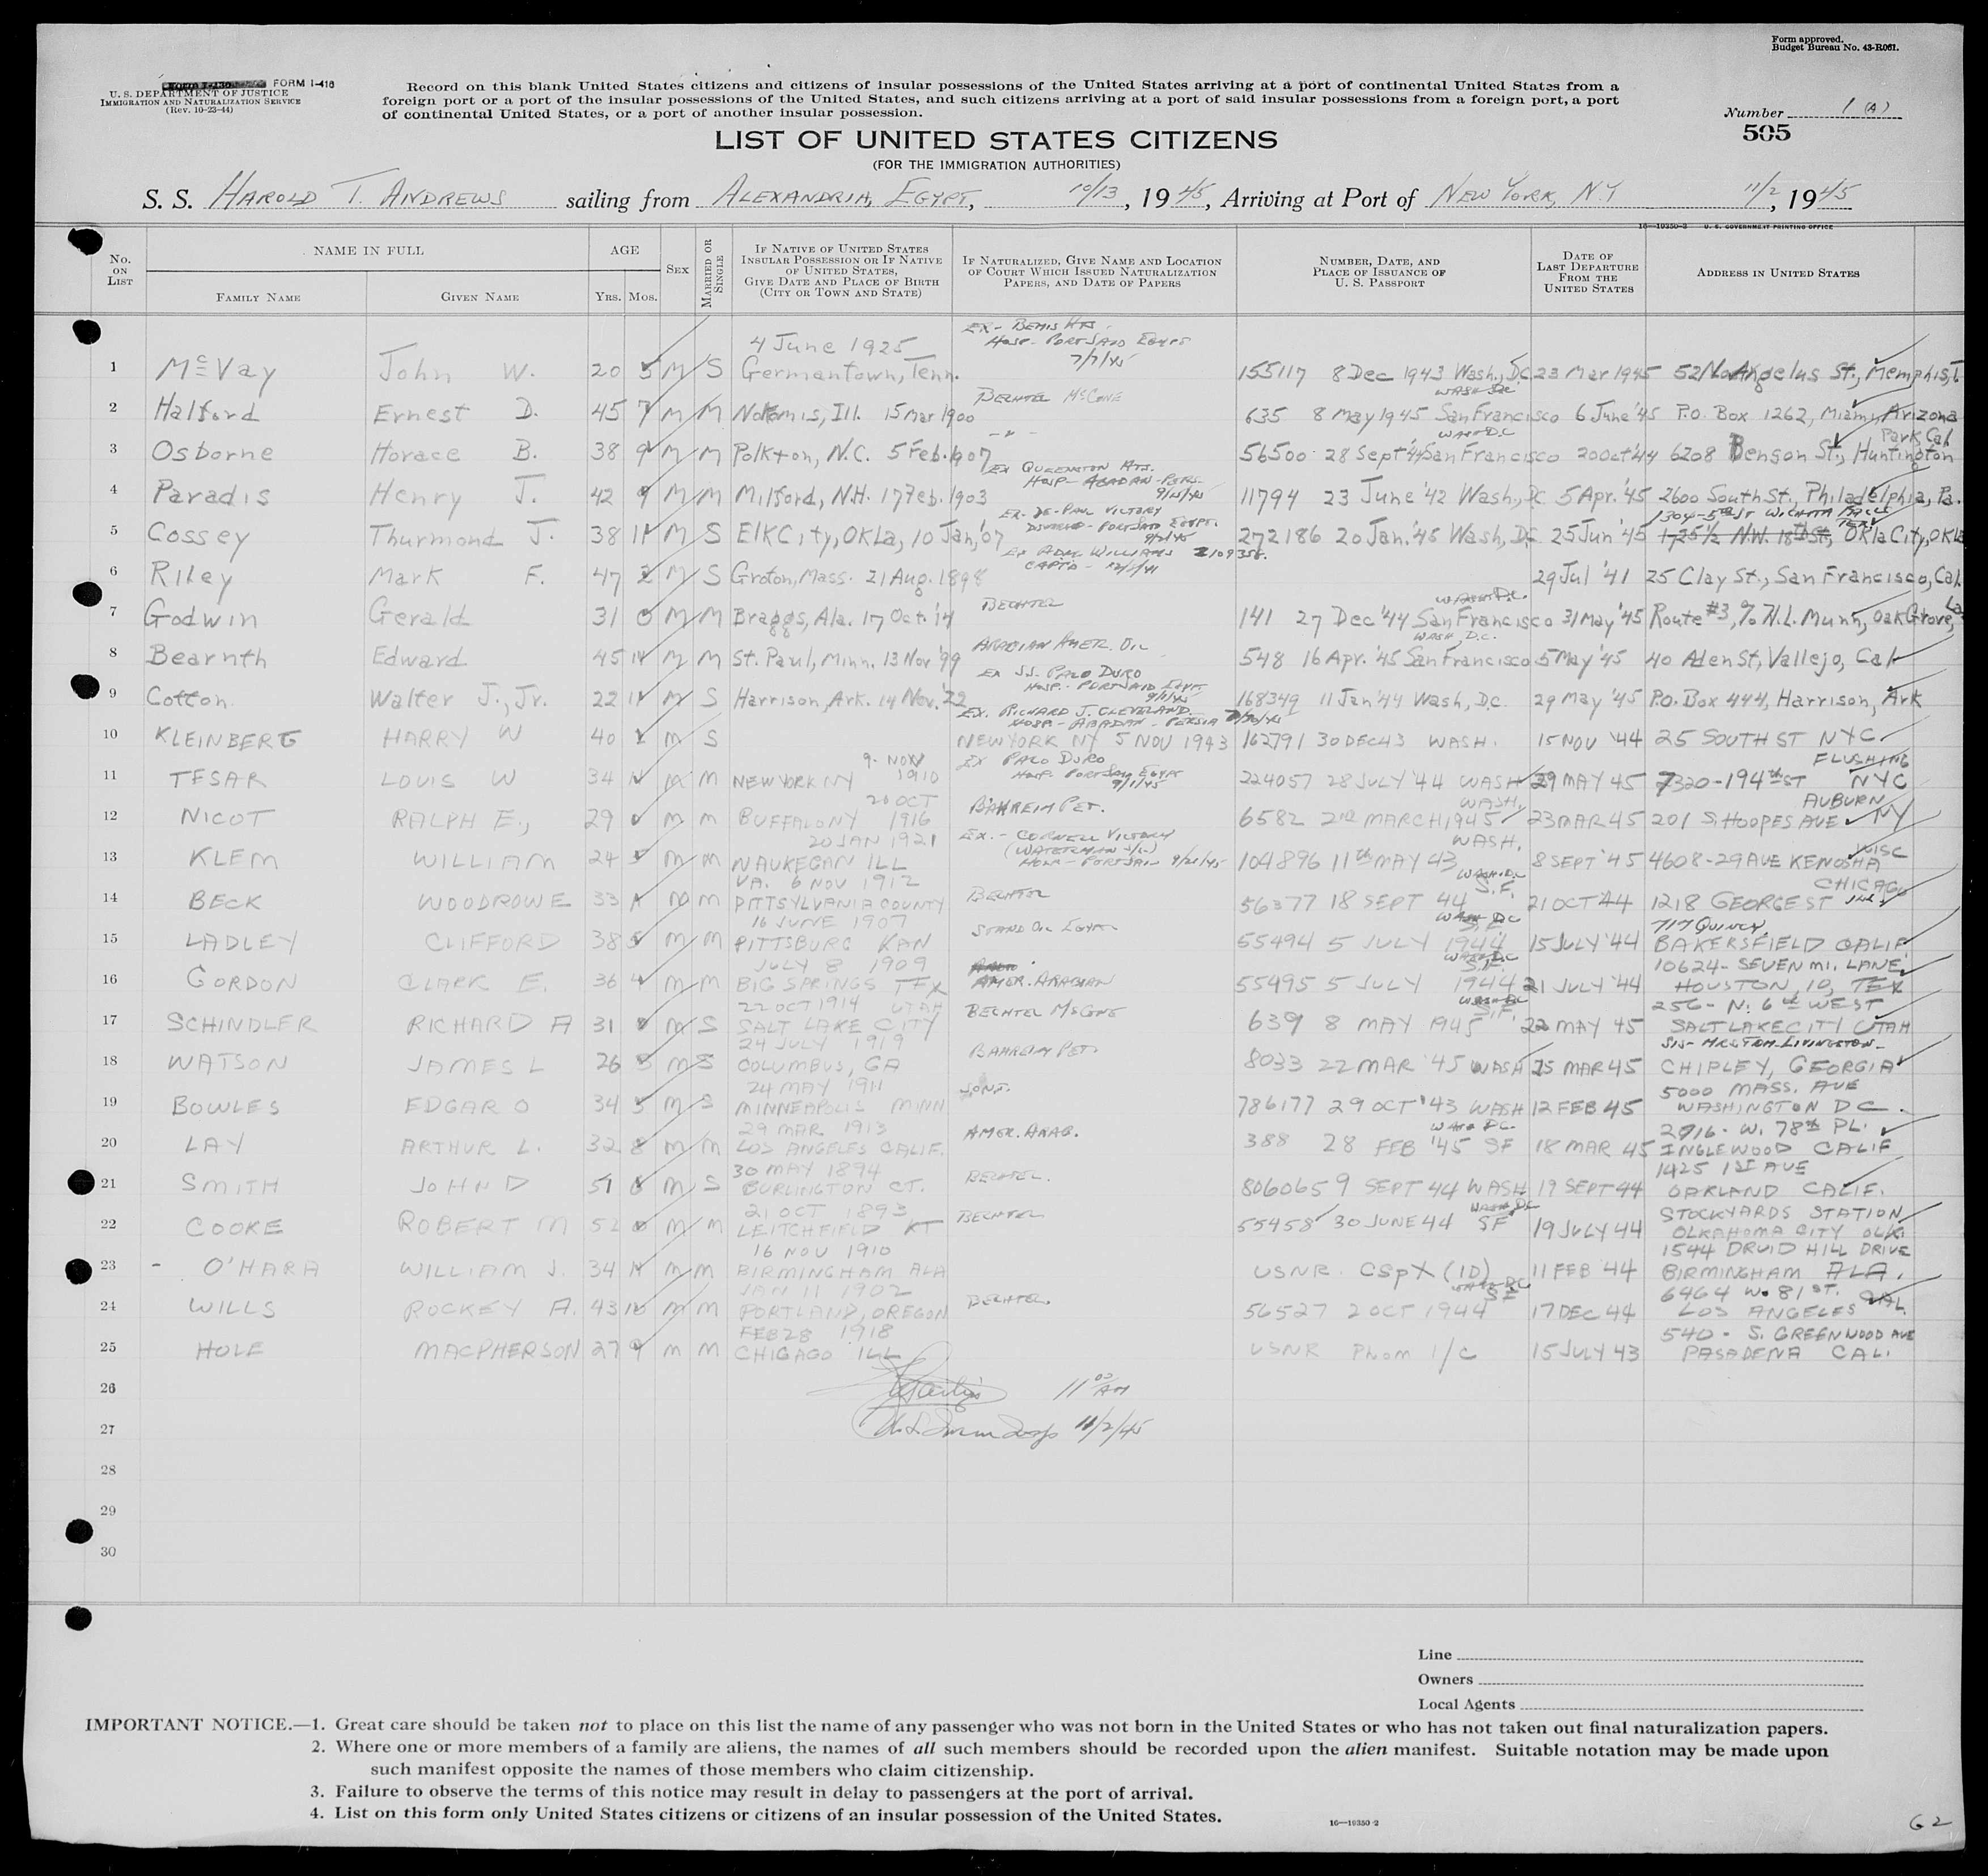 Form approved.
Budget Bureau No. 43-R061.
FORM I-418
U. S. DEPARTMENT OF JUSTICE
IMMIGRATION AND NATURALIZATION SERVICE
(Rev. 10-23-44)
Record on this blank United States citizens and citizens of insular possessions of the United States arriving at a port of continental United States from a
foreign port or a port of the insular possessions of the United States, and such citizens arriving at a port of said insular possessions from a foreign port, a port
of continental United States, or a port of another insular possession.
Number 1 (A)
505
LIST OF UNITED STATES CITIZENS
(FOR THE IMMIGRATION AUTHORITIES)
S. S. HAROLD T. ANDREWS sailing from ALEXANDRIA, EGYPT, 10/13, 1945, Arriving at Port of NEW YORK, N.Y 11/2, 1945
16—19350-2 U. S. GOVERNMENT PRINTING OFFICE
No. ON LIST
NAME IN FULL
FAMILY NAME
GIVEN NAME
AGE
YRS. MOS.
SEX
MARRIED OR SINGLE
IF NATIVE OF UNITED STATES INSULAR POSSESSION OR IF NATIVE OF UNITED STATES, GIVE DATE AND PLACE OF BIRTH (CITY OR TOWN AND STATE)
IF NATURALIZED, GIVE NAME AND LOCATION OF COURT WHICH ISSUED NATURALIZATION PAPERS, AND DATE OF PAPERS
NUMBER, DATE, AND PLACE OF ISSUANCE OF U. S. PASSPORT
DATE OF LAST DEPARTURE FROM THE UNITED STATES
ADDRESS IN UNITED STATES
1 McVay John W. 20 5 M S 4 June 1925 Germantown, Tenn. EX- BEMIS HTS. HOSP- PORT SAID EGYPT 7/7/45 155117 8 Dec 1943 Wash., D.C. 23 Mar 1945 52 No Angelus St., Memphis, T
2 Halford Ernest D. 45 7 M M Nokomis, Ill. 15 Mar 1900 BECHTEL McCONE 635 8 May 1945 San Francisco WASH DC 6 June '45 P.O. Box 1262, Miami, Arizona
3 Osborne Horace B. 38 9 M M Polkton, N.C. 5 Feb. 1907 - " - 56500 28 Sept '44 San Francisco WASH D.C 20 Oct '44 6208 Benson St., Huntington Park, Cal
4 Paradis Henry J. 42 9 M M Milford, N.H. 17 Feb. 1903 EX QUEENSTON HTS. HOSP- ABADAN- PERS- 11794 23 June '42 Wash., D.C. 5 Apr. '45 2600 South St., Philadelphia, Pa.
5 Cossey Thurmond J. 38 11 M S Elk City, Okla, 10 Jan, '07 EX- DE-PAUL VICTORY PORT SAID EGYPT. 272186 20 Jan. '45 Wash, D.C. 25 Jun '45 1304-5TH ST WICHITA FALLS TEX 1725 1/2 N.W. 18th St., Okla City, Okla
6 Riley Mark F. 47 2 M S Groton, Mass. 21 Aug. 1898 EX ADM. WILLIAMS CAPT'D 2109358. 29 Jul '41 25 Clay St., San Francisco, Cal.
7 Godwin Gerald 31 0 M M Braggs, Ala. 17 Oct. '14 BECHTEL 141 27 Dec '44 San Francisco WASH D.C. 31 May '45 Route #3, % N.L. Munn, Oak Grove, La
8 Bearnth Edward 45 11 M M St. Paul, Minn. 13 Nov '99 ARABIAN AMER. OIL 548 16 Apr. '45 San Francisco WASH, D.C. 5 May '45 40 Alden St, Vallejo, Cal
9 Cotton Walter J., Jr. 22 11 M S Harrison, Ark. 14 Nov. '22 EX S.S. PALO DURO HOSP.- PORT SAID EGYPT 168349 11 Jan '44 Wash, D.C. 29 May '45 P.O. Box 444, Harrison, Ark
10 KLEINBERG HARRY W 40 M S EX. RICHARD J. CLEVELAND HOSP- ABADAN- PERSIA NEW YORK NY 5 NOV 1943 162791 30 DEC 43 WASH. 15 NOV '44 25 SOUTH ST NYC
11 TESAR LOUIS W 34 M M NEW YORK NY 9 NOV 1910 EX PALO DURO HOSP. PORT SAID EGYPT 9/1/45 224057 28 JULY '44 WASH 29 MAY 45 7320-194th ST FLUSHING NYC
12 NICOT RALPH E., 29 0 M M BUFFALO NY 20 OCT 1916 BAHREIN PET. 6582 2nd MARCH 1945 WASH. 23 MAR 45 201 S. HOOPES AVE AUBURN NY
13 KLEM WILLIAM 24 M M 20 JAN 1921 WAUKEGAN ILL EX.- CORNELL VICTORY (WATERMAN S/S) HOSP- PORT SAID 9/21/45 104896 11th MAY 43 WASH. 8 SEPT '45 4608-29 AVE KENOSHA WISC
14 BECK WOODROW E 33 M M VA. 6 NOV 1912 PITTSYLVANIA COUNTY BECHTEL 56377 18 SEPT 44 WASH DC S.F. 21 OCT 44 1218 GEORGE ST CHICAGO ILL
15 LADLEY CLIFFORD 38 M M 16 JUNE 1907 PITTSBURG KAN STAND OIL EGYPT 55494 5 JULY 1944 WASH DC 15 JULY '44 717 QUINCY BAKERSFIELD CALIF
16 GORDON CLARK E. 36 4 M M JULY 8 1909 BIG SPRINGS TEX AMER. ARABIAN 55495 5 JULY 1944 WASH DC S.F. 21 JULY '44 10624- SEVEN MI. LANE HOUSTON, 10, TEX
17 SCHINDLER RICHARD A 31 M S 22 OCT 1914 UTAH SALT LAKE CITY BECHTEL McCONE 639 8 MAY 1945 WASH DC S.F. 22 MAY 45 256- N. 6th WEST SALT LAKE CITY UTAH
18 WATSON JAMES L 26 3 M S 24 JULY 1919 COLUMBUS, GA BAHREIN PET. 8033 22 MAR '45 WASH 25 MAR 45 SIS- MRS TOM LIVINGSTON- CHIPLEY, GEORGIA
19 BOWLES EDGAR O 34 5 M S 24 MAY 1911 MINNEAPOLIS MINN 786177 29 OCT '43 WASH 12 FEB 45 5000 MASS. AVE WASHINGTON D C.
20 LAY ARTHUR L. 32 8 M M 29 MAR 1913 LOS ANGELES CALIF. AMER. ARAB. 388 28 FEB '45 SF WASH DC. 18 MAR 45 2916- W. 78th PL. INGLEWOOD CALIF
21 SMITH JOHN D 51 M S 30 MAY 1894 BURLINGTON CT. BECHTEL. 8060659 SEPT 44 WASH 19 SEPT 44 1425 1ST AVE OAKLAND CALIF.
22 COOKE ROBERT M 52 0 M M 21 OCT 1893 LEITCHFIELD KT BECHTEL 55458 30 JUNE 44 WASH DC SF 19 JULY 44 STOCKYARDS STATION OLKAHOMA CITY OLK.
23 - O'HARA WILLIAM J. 34 11 M M 16 NOV 1910 BIRMINGHAM ALA USNR CSpX (ID) 11 FEB '44 1544 DRUID HILL DRIVE BIRMINGHAM ALA.
24 WILLS ROCKEY A. 43 10 M M JAN 11 1902 PORTLAND, OREGON BECHTEL. 56527 2 OCT 1944 WASH DC SF 17 DEC 44 6464 W. 81 ST. LOS ANGELES CAL.
25 HOLE MACPHERSON 27 9 M M FEB 28 1918 CHIGAGO ILL USNR PhoM 1/C 15 JULY 43 540- S. GREENWOOD AVE PASADENA CAL.
26 11 00 AM
27 11/2/45
28
29
30
Line
Owners
Local Agents
IMPORTANT NOTICE.—1. Great care should be taken not to place on this list the name of any passenger who was not born in the United States or who has not taken out final naturalization papers.
2. Where one or more members of a family are aliens, the names of all such members should be recorded upon the alien manifest. Suitable notation may be made upon
such manifest opposite the names of those members who claim citizenship.
3. Failure to observe the terms of this notice may result in delay to passengers at the port of arrival.
4. List on this form only United States citizens or citizens of an insular possession of the United States.
16—19350-2
G 2